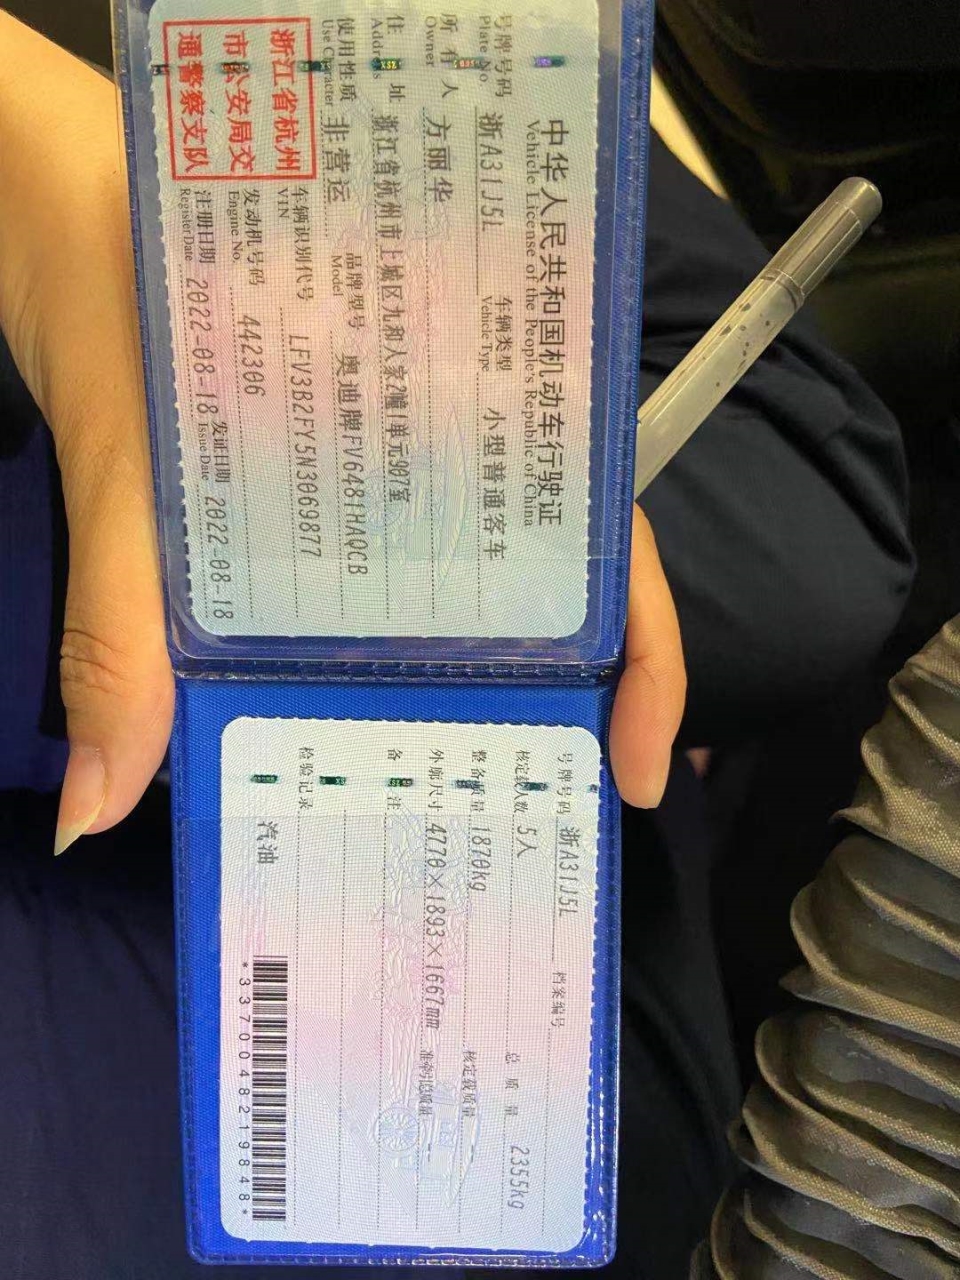 中华人民共和国机动车行驶证
Vehicle License of the People's Republic of China
号牌号码 浙A31J5L 车辆类型 小型普通客车
Plate No. Vehicle Type
所有人 方丽华
Owner
住址 浙江省杭州市上城区九和人家2幢1单元907室
Address
使用性质 非营运 品牌型号 奥迪牌FV6481HAQCB
Use Character Model
浙江省杭州
市公安局交
通警察支队
车辆识别代号 LFV3B2FY5N3069877
VIN
发动机号码 442306
Engine No.
注册日期 2022-08-18 发证日期 2022-08-18
Register Date Issue Date
号牌号码 浙A31J5L 档案编号
核定载人数 5人 总质量 2355kg
整备质量 1870kg 核定载质量
外廓尺寸 4770×1893×1667mm 准牵引总质量
备注
检验记录
汽油
*3370048219848*